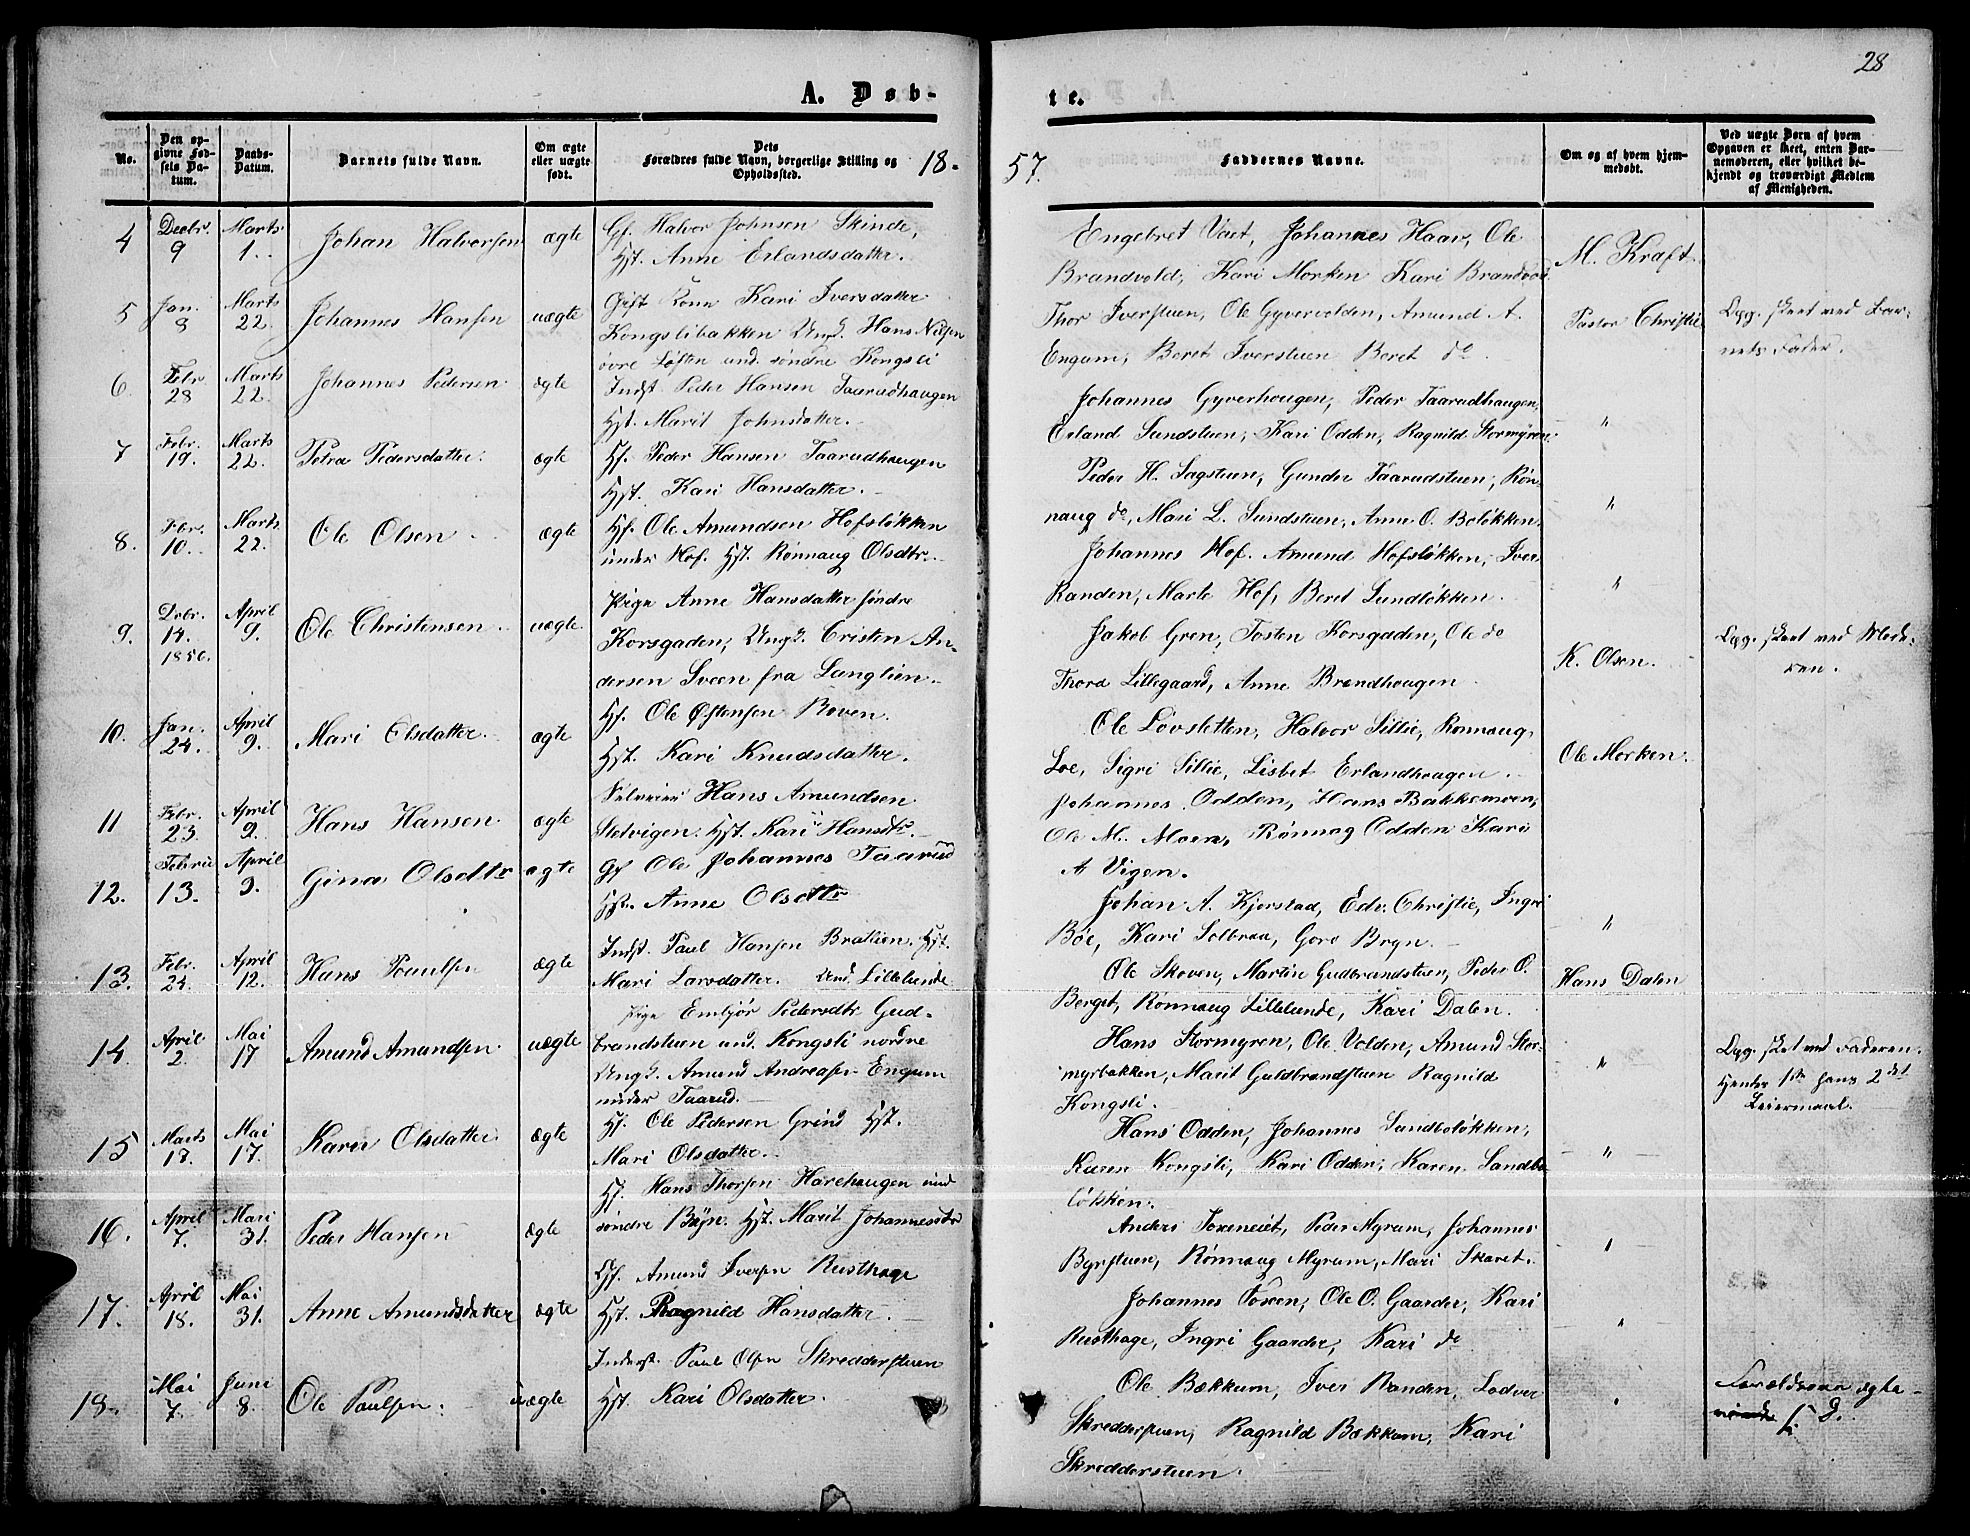 28
A. Døb-
te.
No.
Den op-
givne Fød-
sels Da-
tum.
Daabs-
Datum.
Barnets fulde Navn.
Om ægte
eller uægte
født.
Dets
Forældres fulde Navn, borgerlige Stilling og
Opholdssted.
18.
57.
Faddernes Navne.
Om og af hvem hjem-
medøbt.
Ved uægte Børn af hvem
Opgaven er skeet, enten Bar-
nemoderen, eller hvilket be-
kjendt og troværdigt Medlem
af Menigheden.
4 Decbr. 9 Marts 1. Johan Halvorsen ægte
Gf. Halvor Johnsen Skinde,
Hst. Anne Erlandsdatter.
Engebret Vaet, Johannes Haav, Ole
Brandvold, Kari Morken Kari Brandvold
M. Kraft.
5 Jan. 8 Marts 22. Johannes Hansen uægte
Gift Kone Kari Iversdatter
Kongslibakken Ungk. Hans Nilsen
øvre Løften und. søndre Kongsli
Thor Iverstuen, Ole Gyvervolden, Amund A.
Engum, Beret Iverstuen Beret do.
Pastor Christie
Opg. skeet ved Bar-
nets Fader.
6. Febr. 28 Marts 22. Johannes Pedersen ægte
Indst. Peder Hansen Taarudhaugen
Hst. Marit Johnsdatter.
Johannes Gyverhougen, Peder Taarudhaugen,
Erland Sundstuen, Kari Odden, Ragnild Stormyren.
"
7 Febr. 19. Marts 22. Petra Pedersdatter. ægte
Hf. Peder Hansen Taarudhaugen
Hst. Kari Hansdatter.
Peder H. Sagstuen, Gunder Taarudstuen, Røn-
naug do, Mari L. Sundstuen, Anne O. Boløkken.
"
8. Febr. 10. Marts 22. Ole Olsen ægte
Hf. Ole Amundsen Hofsløkken
under Hof. Hst. Rønnaug Olsdtr.
Johannes Hof. Amund Hofsløkken, Iver
Randen, Marte Hof, Beret Sundløkken.
"
9. Debr. 14. 1856. April 9. Ole Christensen uægte.
Pige Anne Hansdatter søndre
Korsgaden, Ungk. Cristen An-
dersen Sveen fra Langlien.
Jakob Gren, Tosten Korsgaden, Ole do
Thora Lillegaard, Anne Brandhougen
K. Olsen.
Opg. skeet ved Mode-
ren.
10. Jan. 24. April 9. Mari Olsdatter. ægte
Hf. Ole Østensen Roven.
Hst. Kari Knudsdatter.
Ole Løvsletten, Halvor Lillie, Rønnaug
Loe, Sigri Lillie, Lisbet Erlandhaugen.
Ole Morken.
11 Febr. 23. April 9. Hans Hansen. ægte
Selveier Hans Amundsen
Stolvigen. Hst. Kari Hansdtr.
Johannes Odden, Hans Bakkemoen,
Ole M. Moen, Rønnog Odden Kari
A Vigen.
12. Februr 13. April 9. Gina Olsdtr ægte
Gf Ole Johannes Taarud
Hst. Anne Olsdtr
Johan A. Kjorstad, Edv. Christie, Ingri
Bøe, Kari Solbraa, Goro Bryn.
"
13. Febr. 24. April 12. Hans Paulsen ægte
Indst. Paul Hansen Bratlien. Hst.
Mari Larsdatter. Und. Lillelunde
Ole Skoven, Martin Gudbrandstuen, Peder O.
Berget, Rønnaug Lillelunde, Kari Dalen.
Hans Dalen
14. April 2. Mai 17 Amund Amundsen uægte
Pige Embjør Pedersdtr Gud-
brandstuen und. Kongsli nordre
Ungk. Amund Andreasen Engum
under Taarud.
Hans Stormyren, Ole Volden, Amund Stor-
myrbakken, Marit Guldbrandstuen Ragnild
Kongsli.
"
Opg. skeet ved Faderen.
Hendes 1ste hans 2det
Leiermaal.
15 Marts 18. Mai 17. Karen Olsdatter ægte
Hf. Ole Pedersen Grind Hst.
Mari Olsdatter.
Hans Odden, Johannes Sundboløkken,
Karen Kongsli, Kari Odden, Karen Sandbo-
løkken.
"
16. April 7. Mai 31. Peder Hansen ægte
Hf. Hans Thorsen Harehaugen und
søndre Bryn. Hst. Marit Johannesdtr
Anders Toreneiet, Peder Myrum, Johannes
Brynstuen, Rønnaug Myrum, Mari Skaret.
"
17. April 18. Mai 31. Anne Amundsdatter ægte
Hf. Amund Iversen Rusthage
Hst. Ragnild Hansdatter.
Johannes Fosen, Ole O. Gaarder, Kari
Rusthage, Ingri Gaarder, Kari do
"
18. Mai 7. Juni 8. Ole Paulsen. uægte
Inderst. Paul Olsen Skredderstuen
Hst. Kari Olsdatter.
Ole Bækkum, Iver Randen, Lodver
Skredderstuen, Ragnild Bækkum, Kari
Skredderstuen.
"
Forældrene ægte-